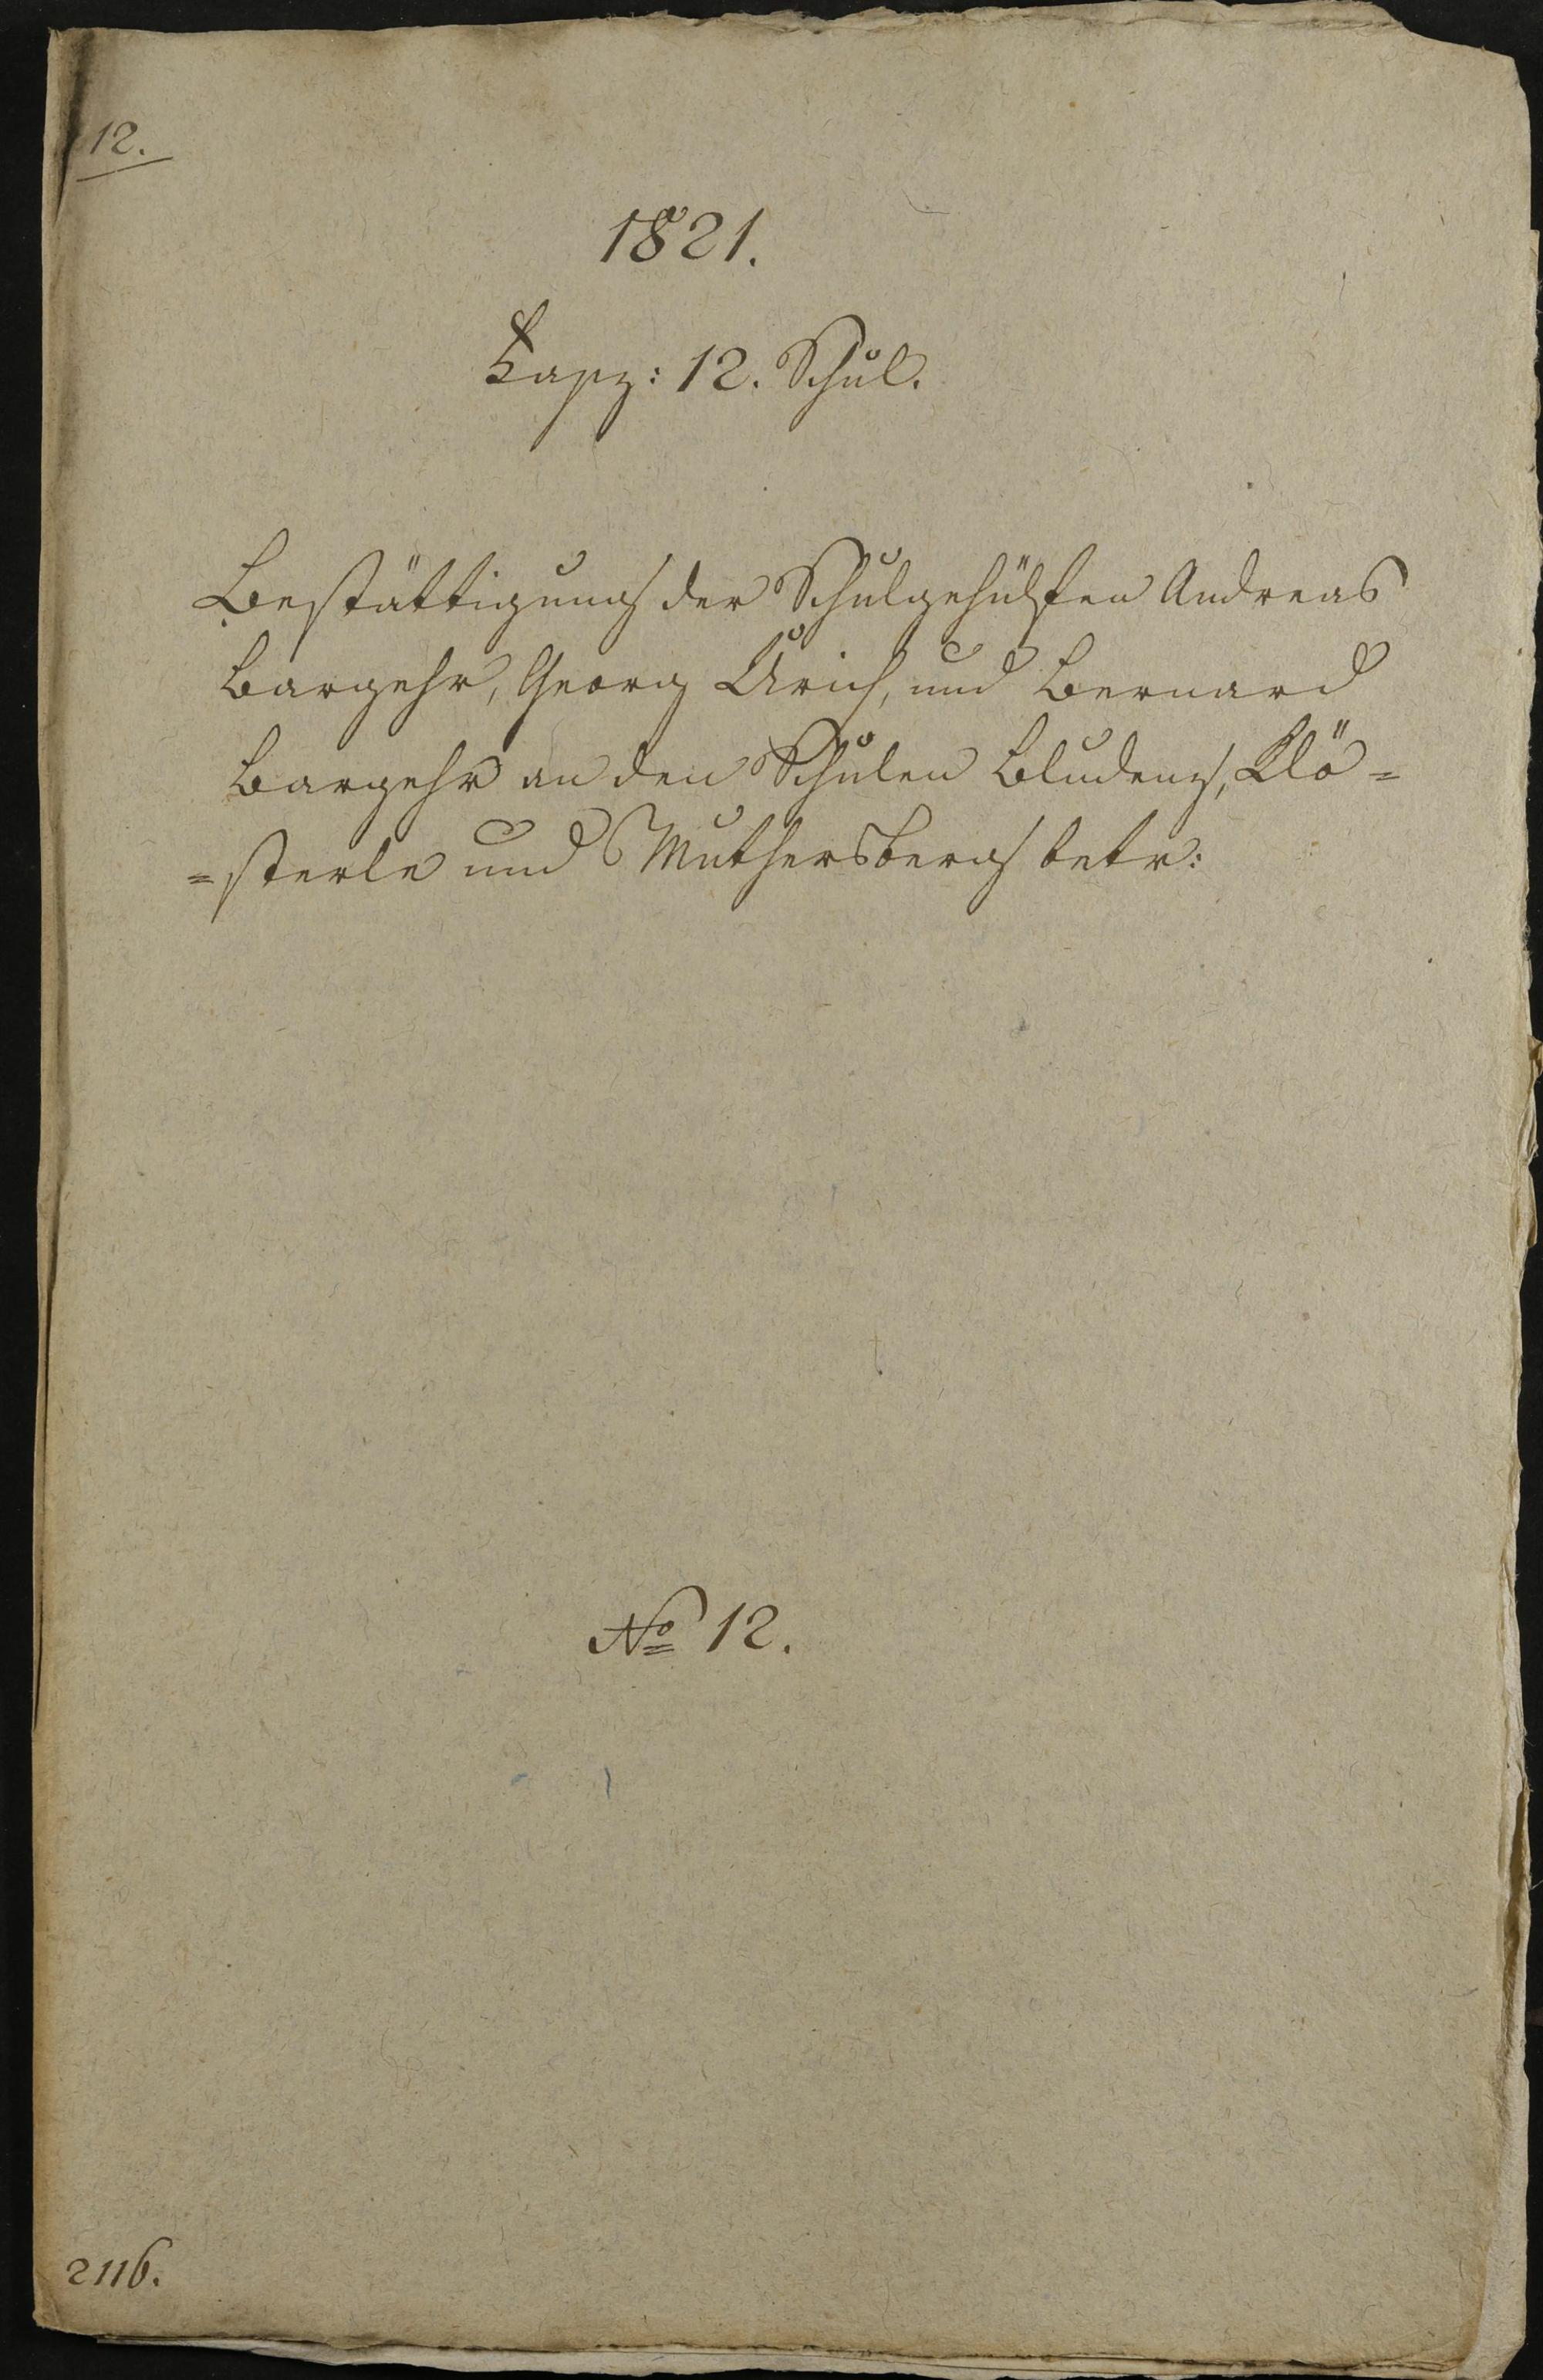 12.
1821.
Fasz: 12. Schul.
Bestättigung der Schulgehülfen Andreas
Bargehr, Georg Urich, und Bernard
Bargehr an den Schulen Bludenz, Klö=
=sterle und Muthersberg betr:
No 12.
2116.